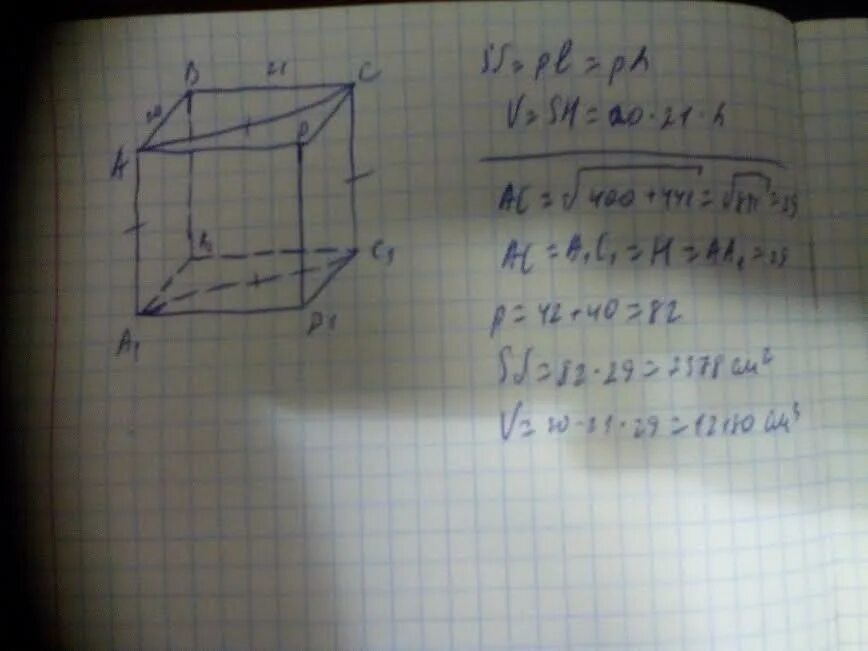 B 21 C
20
A D
B₁ C₁
A₁ D1
SS = pl = ph
V = SH = 20 · 21 · h
AC = √400 + 441 = √841 = 29
AC = A₁C₁ = H = AA₁ = 29
p = 42 + 40 = 82
SS = 82 · 29 = 2378 см²
V = 20 · 21 · 29 = 12180 см³